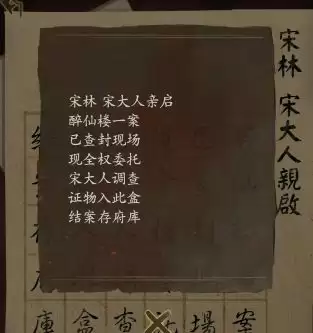 宋林 宋大人亲启
醉仙楼一案
已查封现场
现全权委托
宋大人调查
证物入此盒
结案存府库
宋林 宋大人親啟
庫盒查
場案